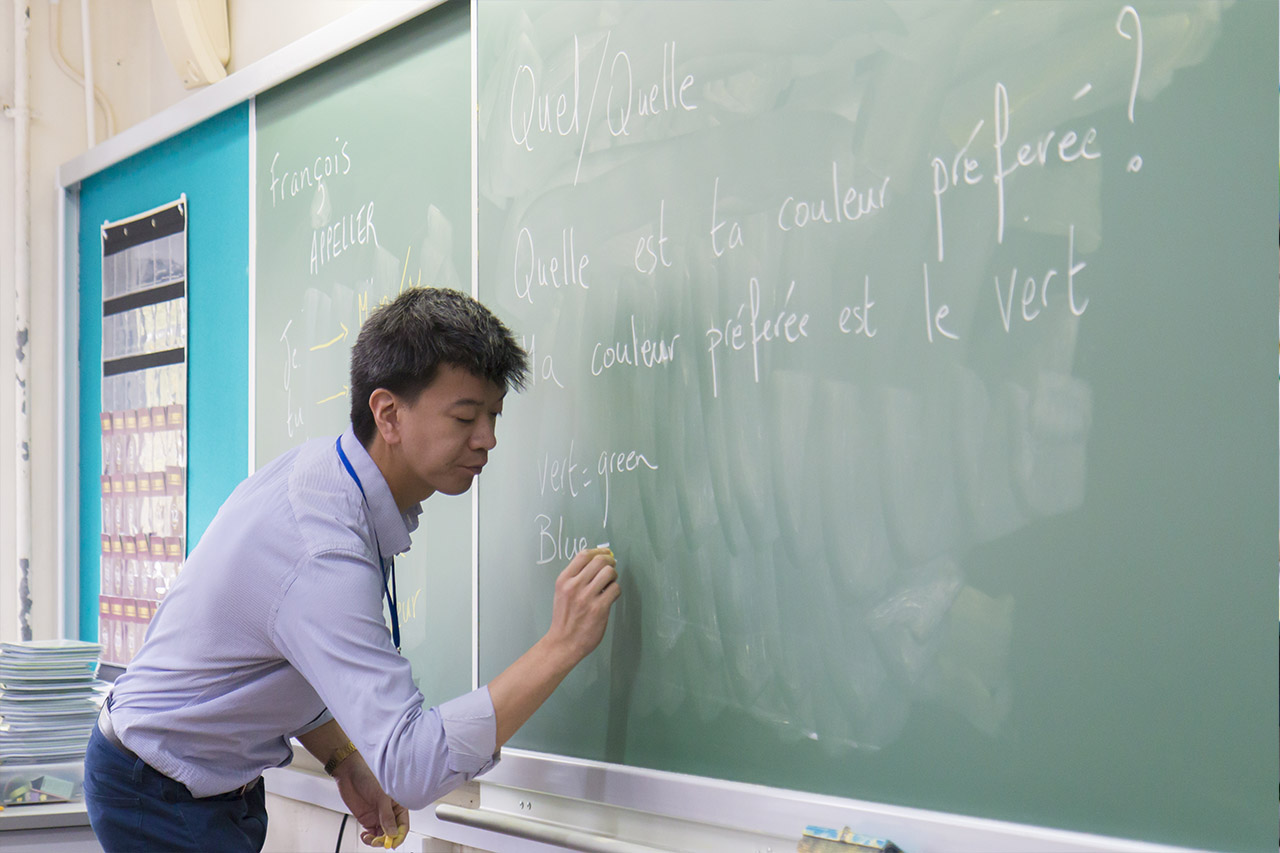 François
APPELLER
Je →
tu →
Quel/Quelle
Quelle est ta couleur préférée ?
Ma couleur préférée est le vert
vert = green
Blue =